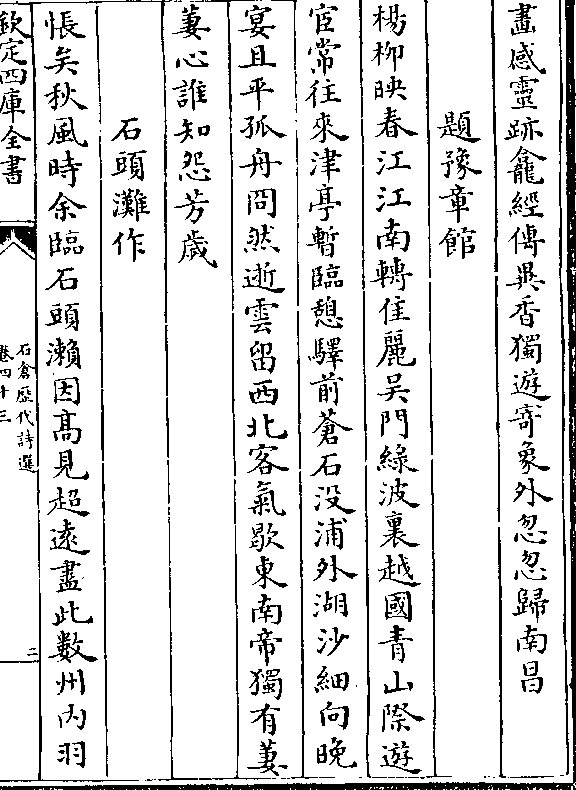 畵感靈跡龕經傳異香獨遊寄象外忽忽歸南昌
題豫章館
楊柳映春江江南轉佳麗吳門綠波裏越國青山際遊
宦常往來津亭暫臨憩驛前蒼石没浦外湖沙細向晚
宴且平孤舟問然逝雲留西北客氣歇東南帝獨有萋
萋心誰知怨芳歲
石頭灘作
悵矣秋風時余臨石頭瀨因髙見超遠盡此數州内羽
欽定四庫全書
石倉歷代詩選
卷四十三
三